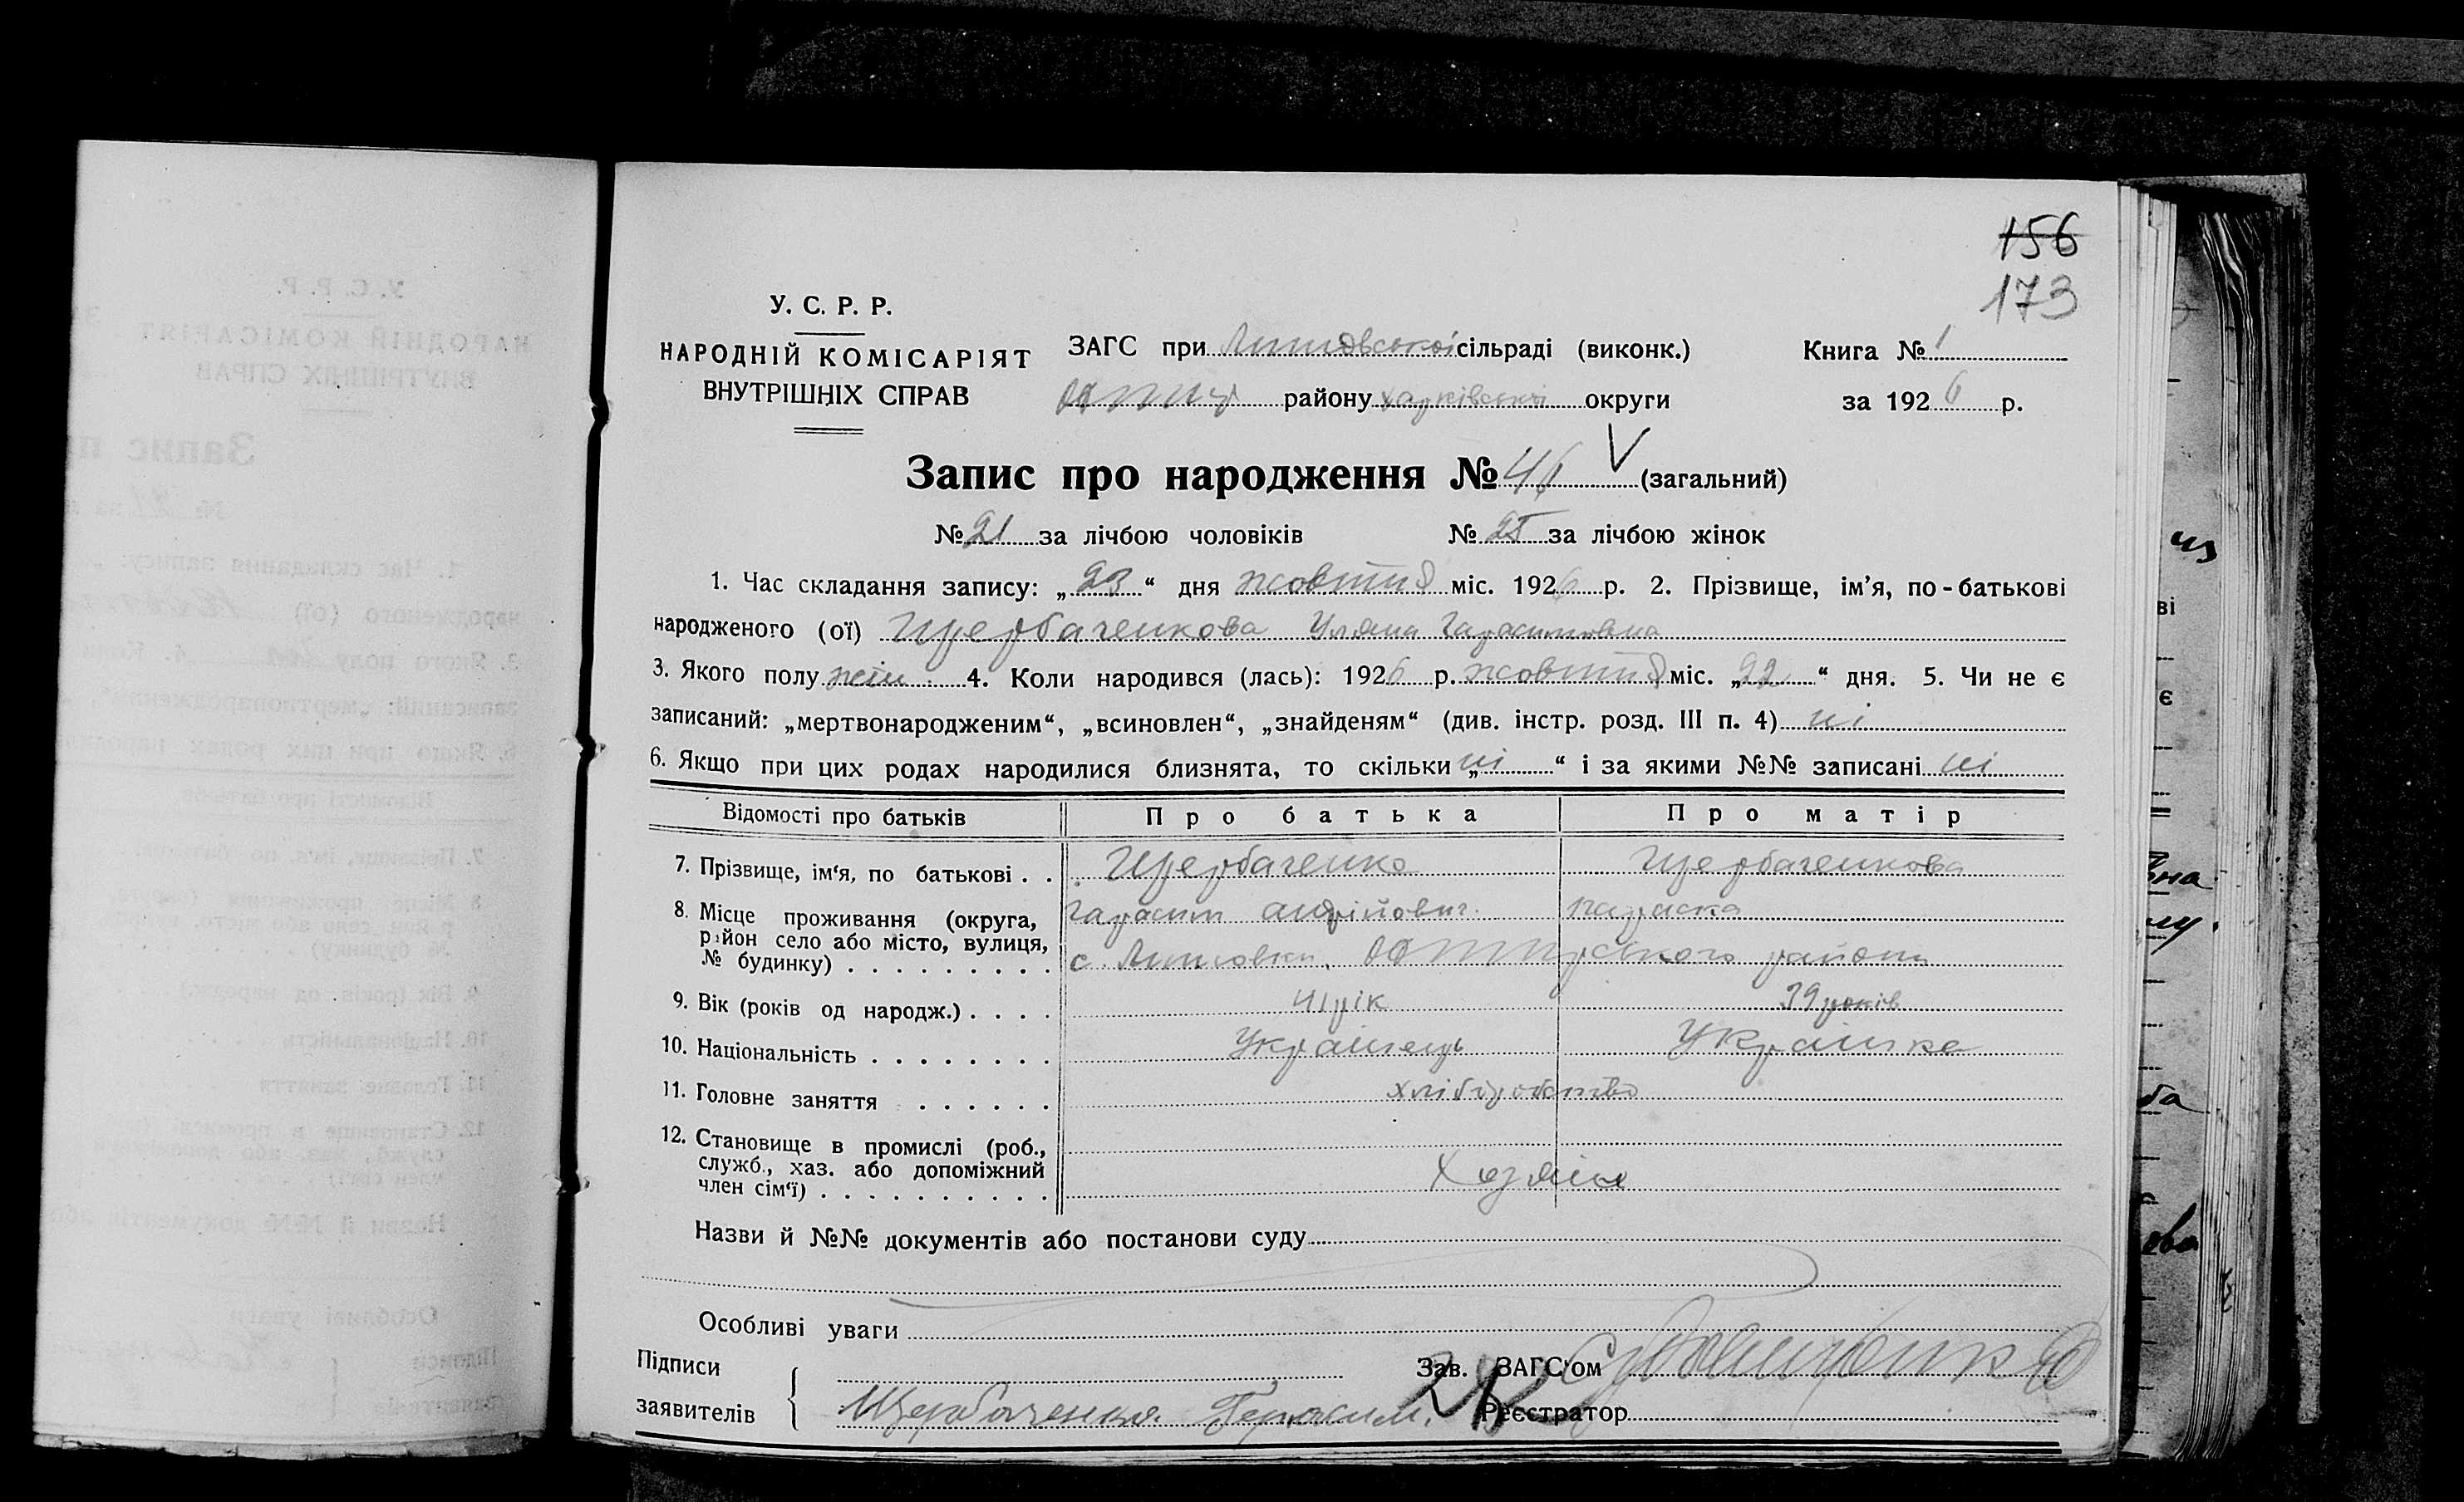 156
173
У. С. Р. Р.
НАРОДНІЙ КОМІСАРІЯТ
ВНУТРІШНІХ СПРАВ
ЗАГС при сільраді (виконк.)
району харківської округи
Книга № 1
за 1926 р.
Запис про народження № 46 V (загальний)
№ 21 за лічбою чоловіків № 25 за лічбою жінок
1. Час складання запису: „23“ дня жовтня міс. 1926 р. 2. Прізвище, ім’я, по-батькові
народженого (ої) Щербаченкова Уляна Гарасимовна
3. Якого полу жін. 4. Коли народився (лась): 1926 р. жовтня міс. „22“ дня. 5. Чи не є
записаний: „мертвонародженим“, „всиновлен“, „знайденям“ (див. інстр. розд. III п. 4) ні
6. Якщо при цих родах народилися близнята, то скільки „ні“ і за якими №№ записані ні
Відомості про батьків Про батька Про матір
7. Прізвище, ім‘я, по батькові . . Щербаченко Щербаченкова
Гарасим андрійович. параска
8. Місце проживання (округа,
район село або місто, вулиця,
№ будинку) . . . . . . . . . с. района
9. Вік (років од народж.) . . . . 41 рік 39 років
10. Національність . . . . . . . . Українець Українка
11. Головне заняття . . . . . . хліборобство
12. Становище в промислі (роб.,
служб., хаз. або допоміжний
член сім‘ї) . . . . . . . . . . Хозяїн
Назви й №№ документів або постанови суду
Особливі уваги
Підписи
заявителів
Щербаченко Герасим.
Зав. ЗАГС‘ом
Реєстратор